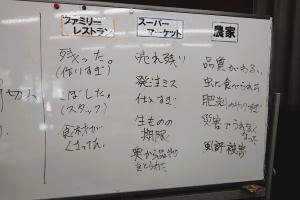 ファミリー
レストラン
残った。
(作りすぎ)
こぼした。
(スタッフ)
食材が
くさってた
スーパー
マーケット
売れ残り
発注ミス
仕入すぎ
生ものの
期限
農家
品質がわるい。
虫に食べられた
災害でうれなく
なった
風評被害